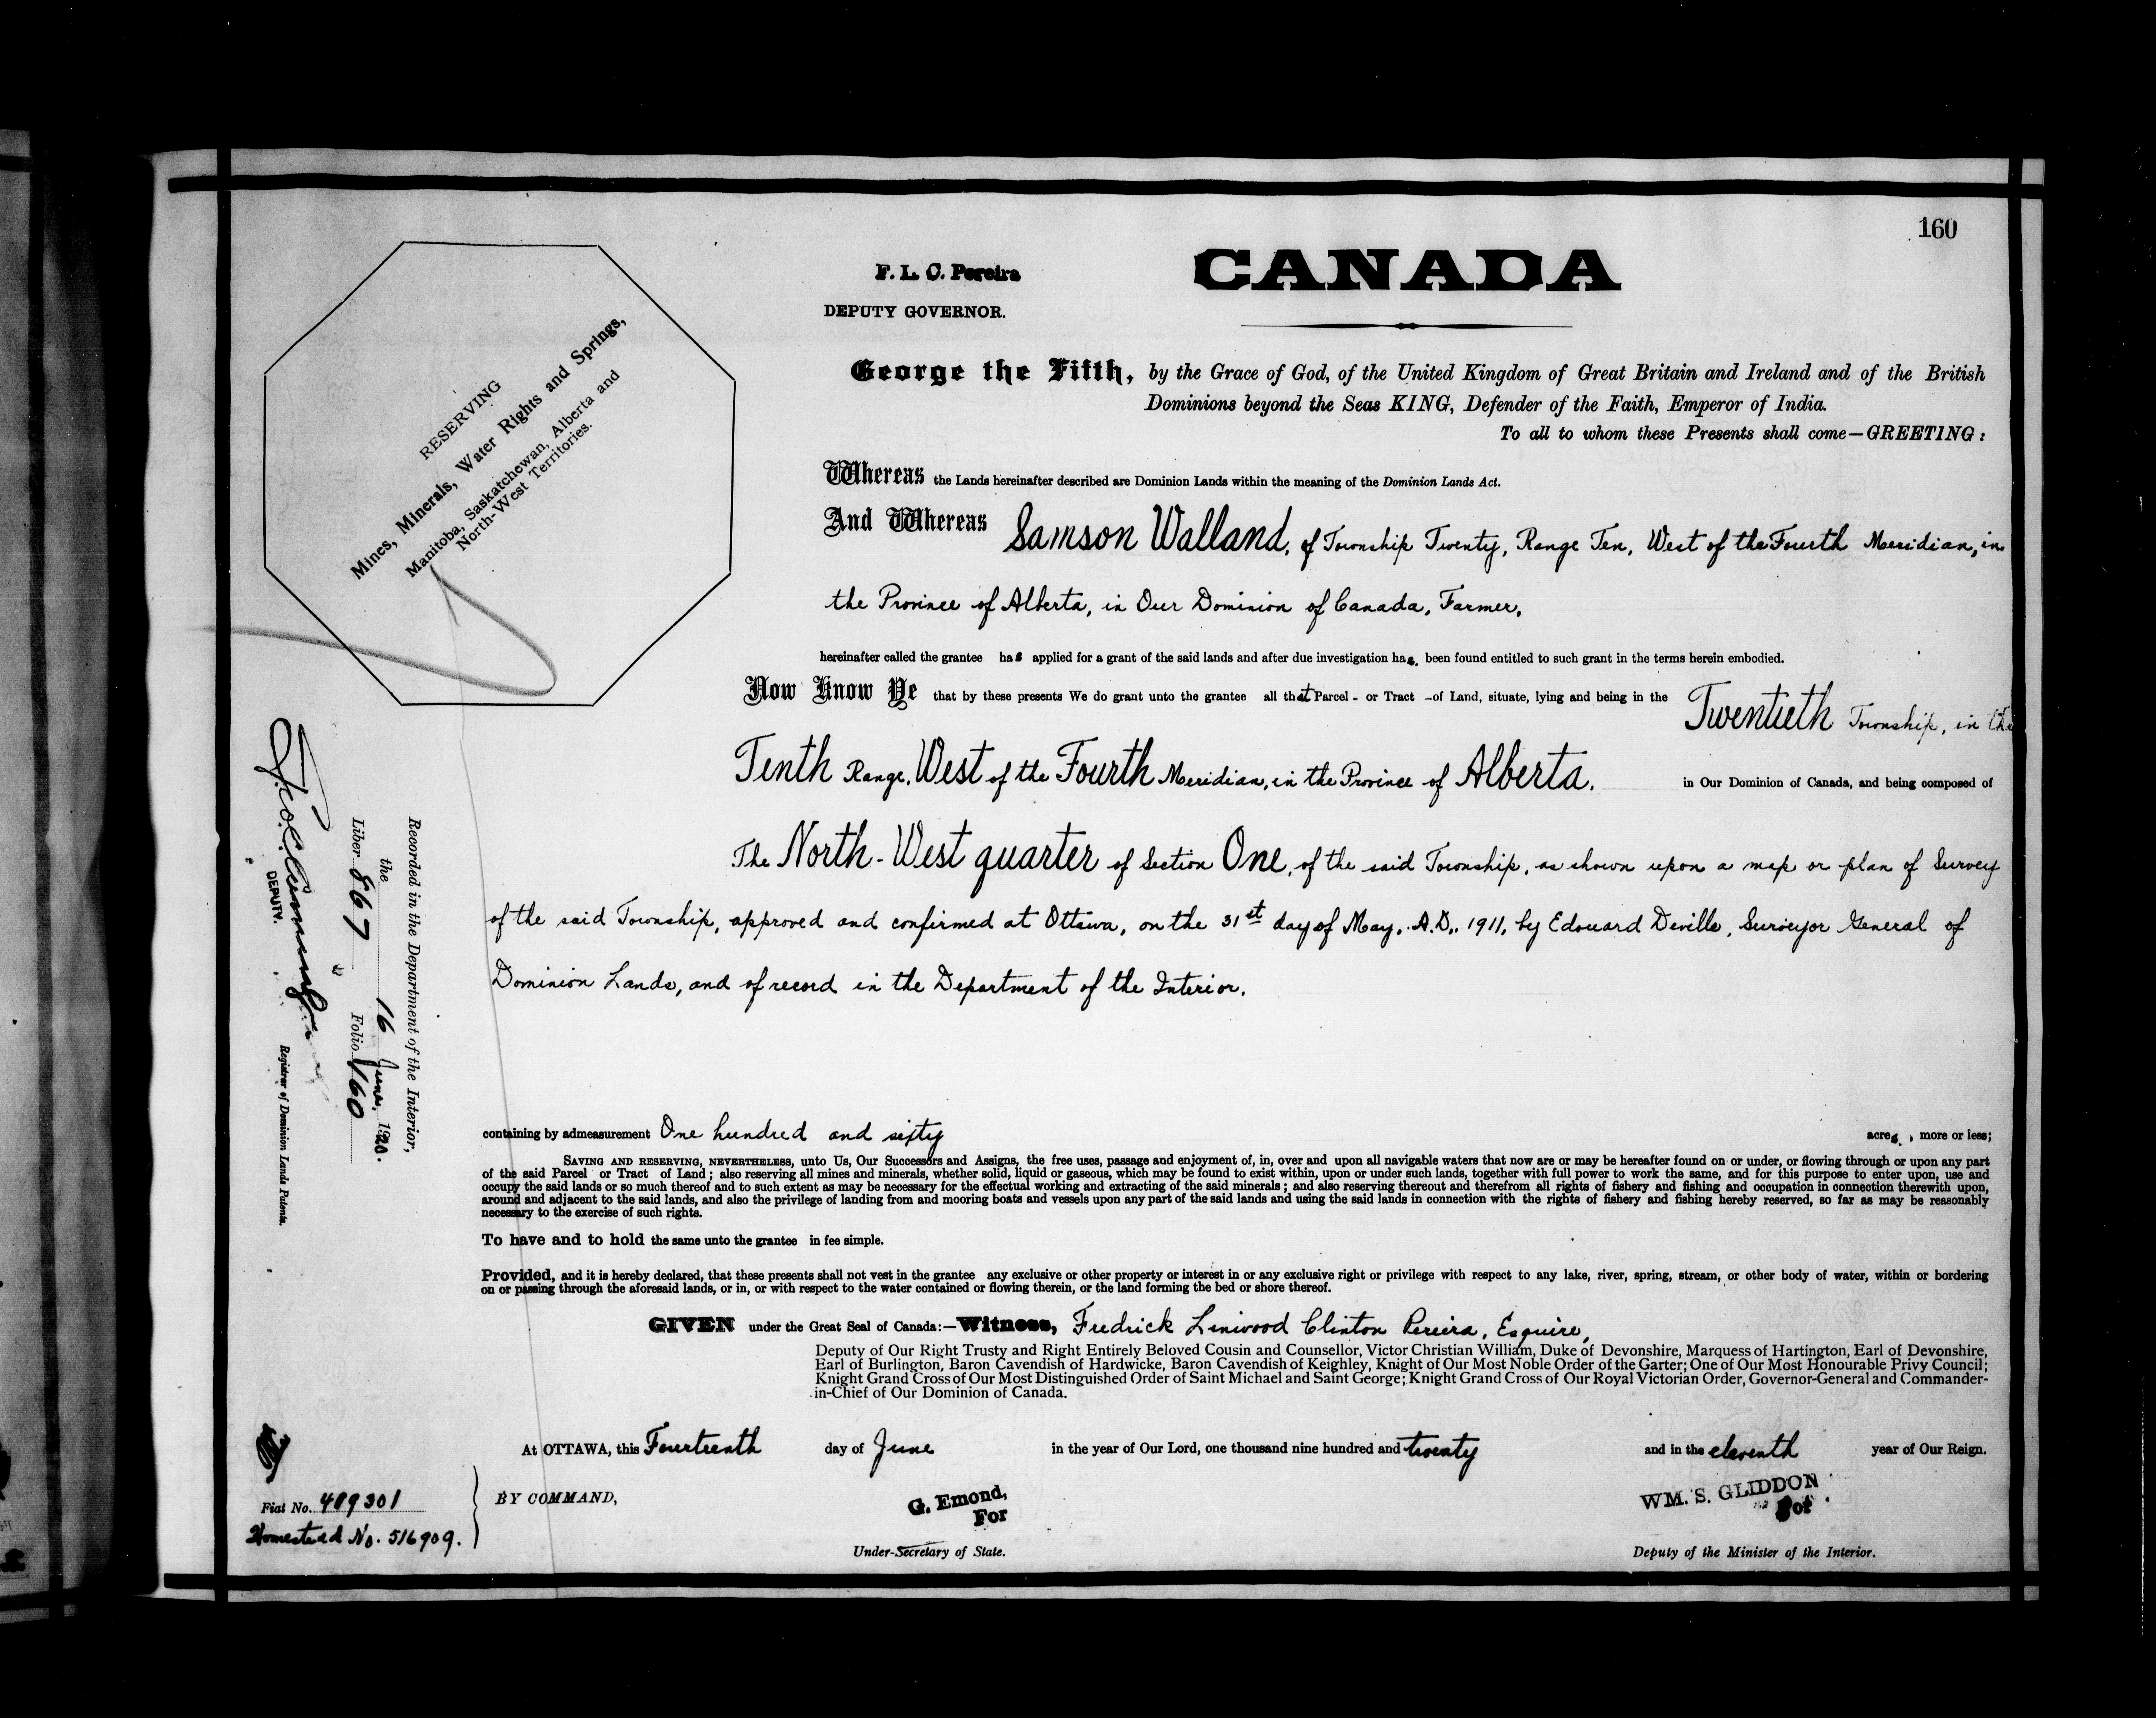 160
F. L. C. Pereira
DEPUTY GOVERNOR.
CANADA
RESERVING
Mines, Minerals, Water Rights and Springs,
Manitoba, Saskatchewan, Alberta and
North-West Territories.
George the Fifth, by the Grace of God, of the United Kingdom of Great Britain and Ireland and of the British
Dominions beyond the Seas KING, Defender of the Faith, Emperor of India.
To all to whom these Presents shall come—GREETING:
Whereas the Lands hereinafter described are Dominion Lands within the meaning of the Dominion Lands Act.
And Whereas Samson Walland, of Township Twenty, Range Ten, West of the Fourth Meridian, in
the Province of Alberta, in Our Dominion of Canada, Farmer,
hereinafter called the grantee has applied for a grant of the said lands and after due investigation has been found entitled to such grant in the terms herein embodied.
Now Know Ye that by these presents We do grant unto the grantee all that Parcel - or Tract - of Land, situate, lying and being in the Twentieth Township, in the
Tenth Range, West of the Fourth Meridian, in the Province of Alberta, in Our Dominion of Canada, and being composed of
The North-West quarter of Section One, of the said Township, as shown upon a map or plan of Survey
of the said Township, approved and confirmed at Ottawa, on the 31st day of May, A.D., 1911, by Edouard Deville, Surveyor General of
Dominion Lands, and of record in the Department of the Interior.
containing by admeasurement One hundred and sixty acres, more or less;
SAVING AND RESERVING, NEVERTHELESS, unto Us, Our Successors and Assigns, the free uses, passage and enjoyment of, in, over and upon all navigable waters that now are or may be hereafter found on or under, or flowing through or upon any part
of the said Parcel or Tract of Land; also reserving all mines and minerals, whether solid, liquid or gaseous, which may be found to exist within, upon or under such lands, together with full power to work the same, and for this purpose to enter upon, use and
occupy the said lands or so much thereof and to such extent as may be necessary for the effectual working and extracting of the said minerals; and also reserving thereout and therefrom all rights of fishery and fishing and occupation in connection therewith upon,
around and adjacent to the said lands, and also the privilege of landing from and mooring boats and vessels upon any part of the said lands and using the said lands in connection with the rights of fishery and fishing hereby reserved, so far as may be reasonably
necessary to the exercise of such rights.
To have and to hold the same unto the grantee in fee simple.
Provided, and it is hereby declared, that these presents shall not vest in the grantee any exclusive or other property or interest in or any exclusive right or privilege with respect to any lake, river, spring, stream, or other body of water, within or bordering
on or passing through the aforesaid lands, or in, or with respect to the water contained or flowing therein, or the land forming the bed or shore thereof.
GIVEN under the Great Seal of Canada:—Witness, Fredrick Linwood Clinton Pereira, Esquire,
Deputy of Our Right Trusty and Right Entirely Beloved Cousin and Counsellor, Victor Christian William, Duke of Devonshire, Marquess of Hartington, Earl of Devonshire,
Earl of Burlington, Baron Cavendish of Hardwicke, Baron Cavendish of Keighley, Knight of Our Most Noble Order of the Garter; One of Our Most Honourable Privy Council;
Knight Grand Cross of Our Most Distinguished Order of Saint Michael and Saint George; Knight Grand Cross of Our Royal Victorian Order, Governor-General and Commander-
in-Chief of Our Dominion of Canada.
At OTTAWA, this Fourteenth day of June in the year of Our Lord, one thousand nine hundred and twenty and in the eleventh year of Our Reign.
BY COMMAND,
G. Emond,
For
Under-Secretary of State.
WM. S. GLIDDON
For
Deputy of the Minister of the Interior.
Fiat No. 489301
Homestead No. 516909.
Recorded in the Department of the Interior,
the 16 June, 1920.
Liber 867 Folio 160
DEPUTY. Registrar of Dominion Lands Patents.